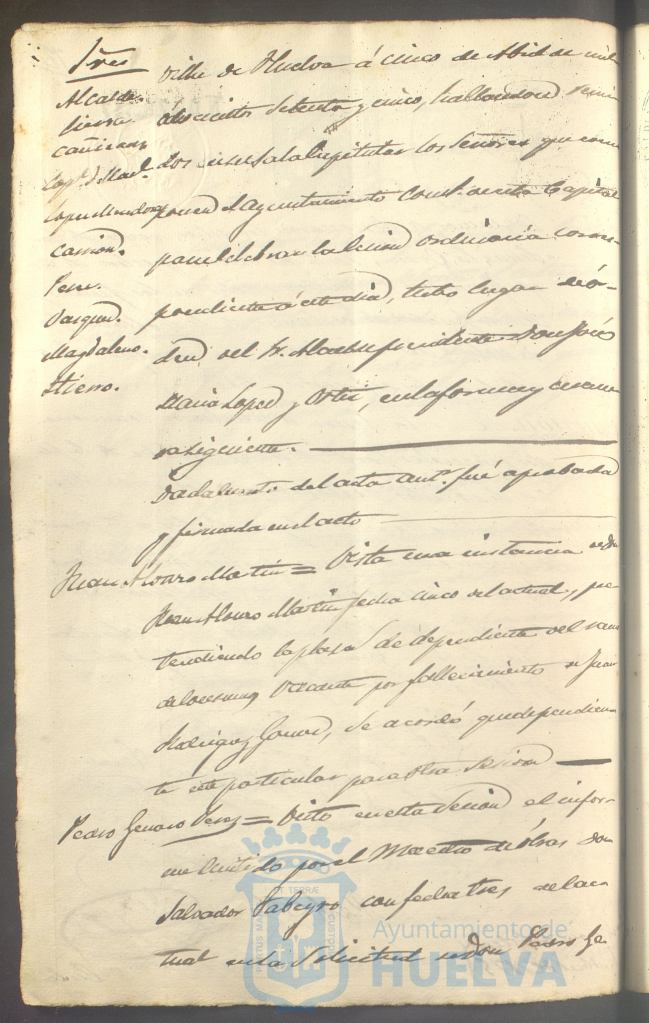 Sres
Alcalde
Sierra
Cañizares
Cap.n d Mad.
Lopez Mendoza
Carrion.
Perez.
Vazquez.
Magdaleno.
Hierro.
villa de Huelva á cinco de Abril de mil
ochocientos setenta y cinco, hallandose reuni
dos en su Sala Capitular los Señores que com
ponen el Ayuntamiento Const. de esta Capital
para celebrar la Sesion ordinaria corres-
pondiente á este dia, tubo lugar de ór-
den del Sr. Alcalde presidente Don José
Maria Lopez y Ortiz, en la forma y
siguiente.
Dada lectura del acta ant.r fué aprobada
y firmada en el acto
Juan Alvaro Martin = Vista una instancia de Don
Juan Alvaro Martin fecha cinco del actual, pre
tendiendo la plaza de dependiente del ramo
de Consumos vacante por fallecimiento de Juan
Rodriguez Gomez, se acordó quede pendien
te este particular para otra sesion
Pedro Genaro Perez = Visto en esta sesion el infor-
me emitido por el Maestro de obras Don
Salvador con fecha tres del ac
tual en la solicitud de Don Pedro Ge
Ayuntamiento de
HUELVA